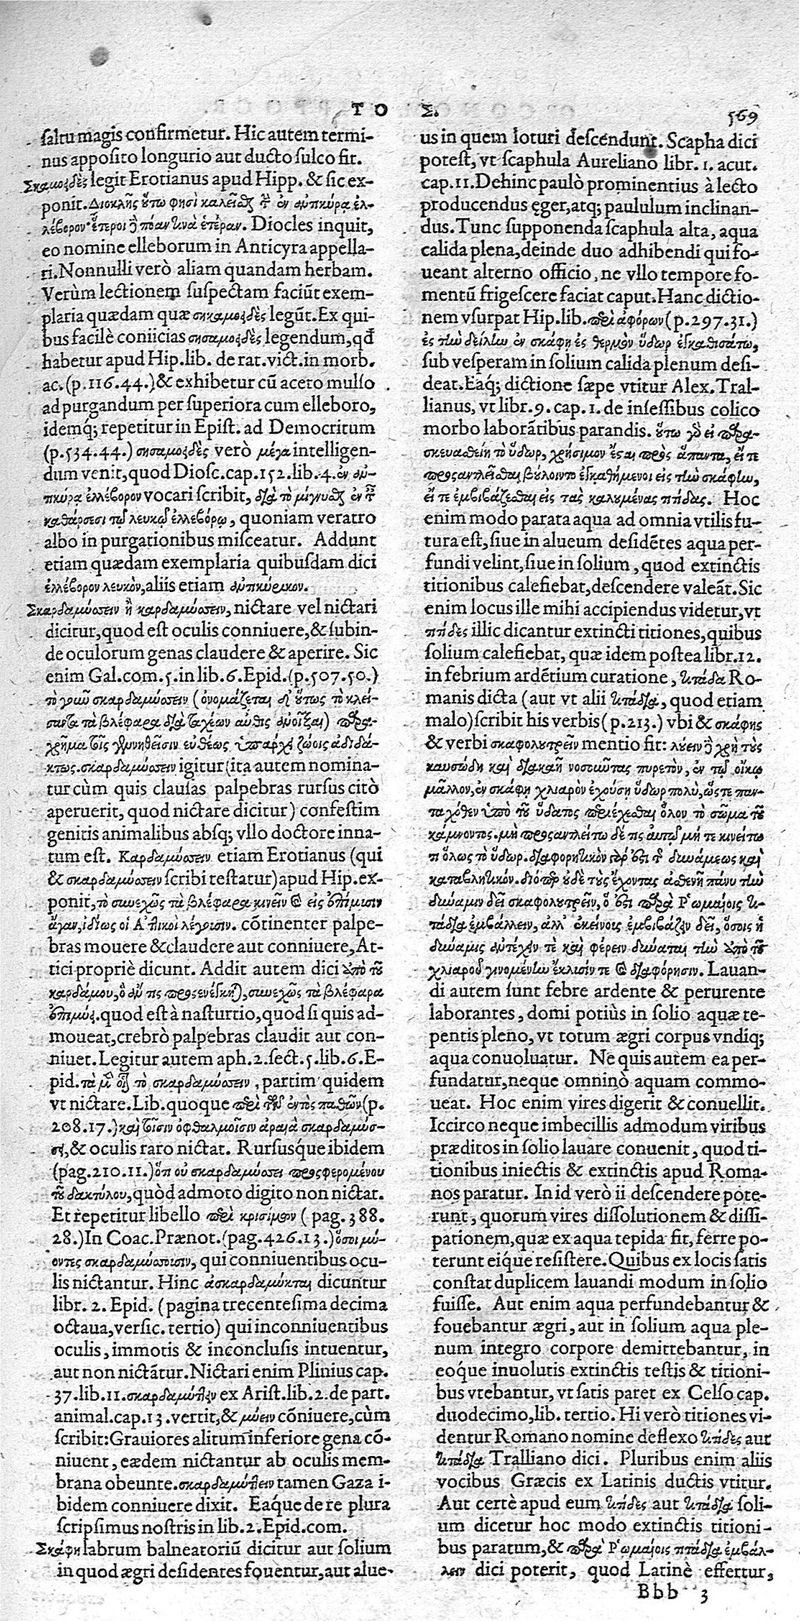 ΤΟ Σ. 569
saltu magis confirmetur. Hic autem termi-
nus apposito longurio aut ducto sulco fit.
Σκαμοιδὲς legit Erotianus apud Hipp. & sic ex-
ponit. Διοκλῆς οὕτω φησὶ καλεῖσθαι τὸν ἐν ἀντικύρᾳ ἑλ-
λέβορον· ἕτεροι δὲ πόαν τινὰ ἑτέραν. Diocles inquit,
eo nomine elleborum in Anticyra appella-
ri. Nonnulli verò aliam quandam herbam.
Verùm lectionem suspectam faciūt exem-
plaria quædam quæ σηκαμοιδὲς legūt. Ex qui-
bus facilè coniicias σησαμοιδὲς legendum, qđ
habetur apud Hip. lib. de rat. vict. in morb.
ac. (p. 116. 44.) & exhibetur cū aceto mulso
ad purgandum per superiora cum elleboro,
idemq; repetitur in Epist. ad Democritum
(p. 534. 44.) σησαμοιδὲς verò μέγα intelligen-
dum venit, quod Diosc. cap. 152. lib. 4. ἐν ἀν-
τικύρᾳ ἑλλέβορον vocari scribit, διὰ τὸ μίγνυσθαι ἐν ταῖς
καθάρσεσι τῷ λευκῷ ἑλλεβόρῳ, quoniam veratro
albo in purgationibus misceatur. Addunt
etiam quædam exemplaria quibusdam dici
ἑλλέβορον λευκὸν, aliis etiam ἀντικύρικον.
Σκαρδαμύσσειν ἢ καρδαμύσσειν, nictare vel nictari
dicitur, quod est oculis conniuere, & subin-
de oculorum genas claudere & aperire. Sic
enim Gal. com. 5. in lib. 6. Epid. (p. 507. 50.)
τὸ γοῦν σκαρδαμύσσειν (ὀνομάζεται δὲ οὕτως τὸ κλεί-
σαντα τὰ βλέφαρα διὰ ταχέων αὖθις ἀνοῖξαι) παρα-
χρῆμα τοῖς γεννηθεῖσιν εὐθέως ὑπάρχει ζώοις ἀδιδά-
κτως. σκαρδαμύσσειν igitur (ita autem nomina-
tur cùm quis clausas palpebras rursus citò
aperuerit, quod nictare dicitur) confestim
genitis animalibus absq; vllo doctore inna-
tum est. Καρδαμύσσειν etiam Erotianus (qui
& σκαρδαμύσσειν scribi testatur) apud Hip. ex-
ponit, τὸ συνεχῶς τὰ βλέφαρα κινεῖν καὶ εἰς ἐπίμυσιν
ἄγαν, ἰδίως οἱ Ἀττικοὶ λέγουσιν. cōtinenter palpe-
bras mouere & claudere aut conniuere, At-
tici propriè dicunt. Addit autem dici ἀπὸ τοῦ
καρδάμου, ὃ ἄν τις προσενέγκηται, συνεχῶς τὰ βλέφαρα
ἐπιμύει. quod est à nasturtio, quod si quis ad-
moueat, crebrò palpebras claudit aut con-
niuet. Legitur autem aph. 2. sect. 5. lib. 6. E-
pid. τὰ μὲν οἷον τὸ σκαρδαμύσσειν, partim quidem
vt nictare. Lib. quoque περὶ τῶν ἐντὸς παθῶν (p.
208. 17.) καὶ τοῖσιν ὀφθαλμοῖσιν ἀραιὰ σκαρδαμύσ-
σει, & oculis raro nictat. Rursusque ibidem
(pag. 210. 11.) ὅτι οὐ σκαρδαμύσσει προσφερομένου
τοῦ δακτύλου, quòd admoto digito non nictat.
Et repetitur libello περὶ κρισίμων ( pag. 388.
28.) In Coac. Prænot. (pag. 426. 13.) ὅσοι μύ-
οντες σκαρδαμύσσουσιν, qui conniuentibus ocu-
lis nictantur. Hinc ἀσκαρδαμύκται dicuntur
libr. 2. Epid. (pagina trecentesima decima
octaua, versic. tertio) qui inconniuentibus
oculis, immotis & inconclusis intuentur,
aut non nictātur. Nictari enim Plinius cap.
37. lib. 11. σκαρδαμύττειν ex Arist. lib. 2. de part.
animal. cap. 13. vertit, & μύειν cōniuere, cùm
scribit: Grauiores alitum inferiore gena cō-
niuent, eædem nictantur ab oculis mem-
brana obeunte. σκαρδαμύττειν tamen Gaza i-
bidem conniuere dixit. Eaque de re plura
scripsimus nostris in lib. 2. Epid. com.
Σκάφη labrum balneatoriū dicitur aut solium
in quod ægri desidentes fouentur, aut alue-
us in quem loturi descendunt. Scapha dici
potest, vt scaphula Aureliano libr. 1. acut.
cap. 11. Dehinc paulò prominentius à lecto
producendus eger, atq; paululum inclinan-
dus. Tunc supponenda scaphula alta, aqua
calida plena, deinde duo adhibendi qui fo-
ueant alterno officio, ne vllo tempore fo-
mentū frigescere faciat caput. Hanc dictio-
nem vsurpat Hip. lib. περὶ ἀφόρων (p. 297. 31.)
ἐς τὴν δείλην ἐν σκάφῃ ἐς θερμὸν ὕδωρ ἐγκαθισάτω,
sub vesperam in solium calida plenum desi-
deat. Eaq; dictione sæpe vtitur Alex. Tral-
lianus, vt libr. 9. cap. 1. de insessibus colico
morbo laborātibus parandis. οὕτω γὰρ εἰ παρα-
σκευασθείη τὸ ὕδωρ, χρήσιμον ἔσται πρὸς ἅπαντα, εἴ τε
προσαντλεῖσθαι βούλοιντο ἐγκαθήμενοι εἰς τὴν σκάφην,
εἴ τε ἐμβιβάζεσθαι εἰς τὰς καλουμένας πτίδας. Hoc
enim modo parata aqua ad omnia vtilis fu-
tura est, siue in alueum desidētes aqua per-
fundi velint, siue in solium, quod extinctis
titionibus calefiebat, descendere valeāt. Sic
enim locus ille mihi accipiendus videtur, vt
πτίδες illic dicantur extincti titiones, quibus
solium calefiebat, quæ idem postea libr. 12.
in febrium ardētium curatione, πτάδα Ro-
manis dicta (aut vt alii πτάδια, quod etiam
malo) scribit his verbis (p. 213.) vbi & σκάφης
& verbi σκαφολουτρεῖν mentio fit: λούειν δὲ χρὴ τοὺς
καυσώδη καὶ διακαῆ νοσοῦντας πυρετὸν, ἐν τῷ οἴκῳ
μᾶλλον, ἐν σκάφῃ χλιαρὸν ἐχούσῃ ὕδωρ πολὺ, ὥστε παν-
ταχόθεν ὑπὸ τοῦ ὕδατος περιέχεσθαι ὅλον τὸ σῶμα τοῦ
κάμνοντος. μὴ προσαντλείτω δέ τις αὐτῷ μή τε κινείτω
τι ὅλως τὸ ὕδωρ. διαφορητικὸν γάρ ἐστι τῆς δυνάμεως καὶ
καταβλητικόν. διόπερ οὐδὲ τοὺς ἔχοντας ἀσθενῆ πάνυ τὴν
δύναμιν δεῖ σκαφολουτρεῖν, ὅ ἐστι παρὰ Ῥωμαίοις πτάδια
ἐμβάλλειν, ἀλλ' ἐκείνοις ἐμβιβάζειν δεῖ, ὅσοις ἡ
δύναμις ἀντέχειν τε καὶ φέρειν δύναται τὴν ὑπὸ τοῦ
χλιαροῦ γινομένην ἔκλυσίν τε καὶ διαφόρησιν. Lauan-
di autem sunt febre ardente & perurente
laborantes, domi potiùs in solio aquæ te-
pentis pleno, vt totum ægri corpus vndiq;
aqua conuoluatur. Ne quis autem ea per-
fundatur, neque omninò aquam commo-
ueat. Hoc enim vires digerit & conuellit.
Iccirco neque imbecillis admodum viribus
præditos in solio lauare conuenit, quod ti-
tionibus iniectis & extinctis apud Roma-
nos paratur. In id verò ii descendere pote-
runt, quorum vires dissolutionem & dissi-
pationem, quæ ex aqua tepida fit, ferre po-
terunt eique resistere. Quibus ex locis satis
constat duplicem lauandi modum in solio
fuisse. Aut enim aqua perfundebantur &
fouebantur ægri, aut in solium aqua ple-
num integro corpore demittebantur, in
eoque inuolutis extinctis testis & titioni-
bus vtebantur, vt satis paret ex Celso cap.
duodecimo, lib. tertio. Hi verò titiones vi-
dentur Romano nomine deflexo πτίδες aut
πτάδια Tralliano dici. Pluribus enim aliis
vocibus Græcis ex Latinis ductis vtitur.
Aut certè apud eum πτίδες aut πτάδια soli-
um dicetur hoc modo extinctis titioni-
bus paratum, & παρὰ Ῥωμαίοις πτάδια ἐμβάλ-
λειν dici poterit, quod Latinè effertur,
Bbb 3